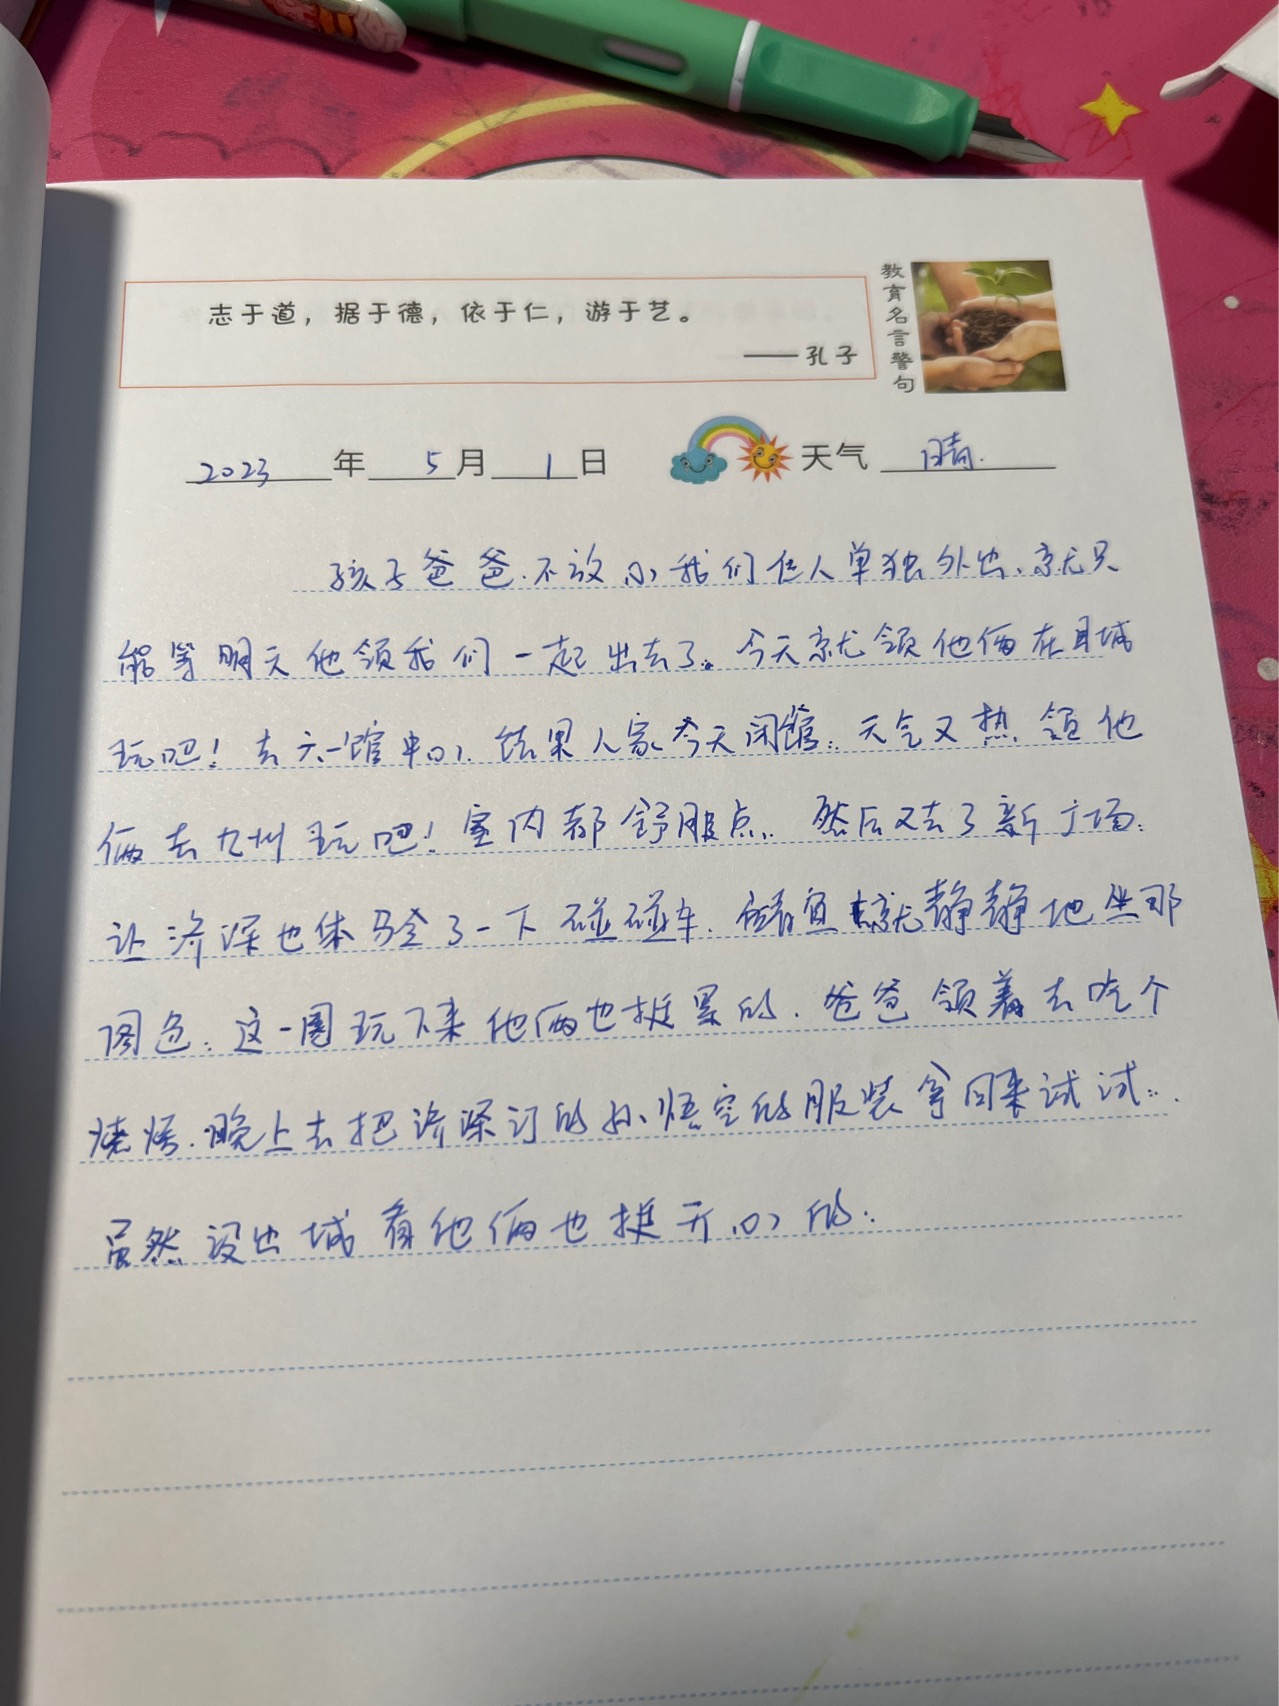 志于道，据于德，依于仁，游于艺。
——孔子
教育名言警句
2023年5月1日 天气 晴.
孩子爸爸.不放心我们仨人单独外出、就只
能等明天他领我们一起出去了。今天就领他俩在县城
玩吧！去六一馆中心.结果人家今天闭馆.天气又热.领他
俩去九州玩吧！室内都舒服点.然后又去了新广场.
让济深也体验了一下碰碰车.就静静地坐那
图色.这一圈玩下来他俩也挺累的.爸爸领着去吃个
烧烤.晚上去把济深订的孙悟空的服装拿回来试试.
虽然没出城 他俩也挺开心的.